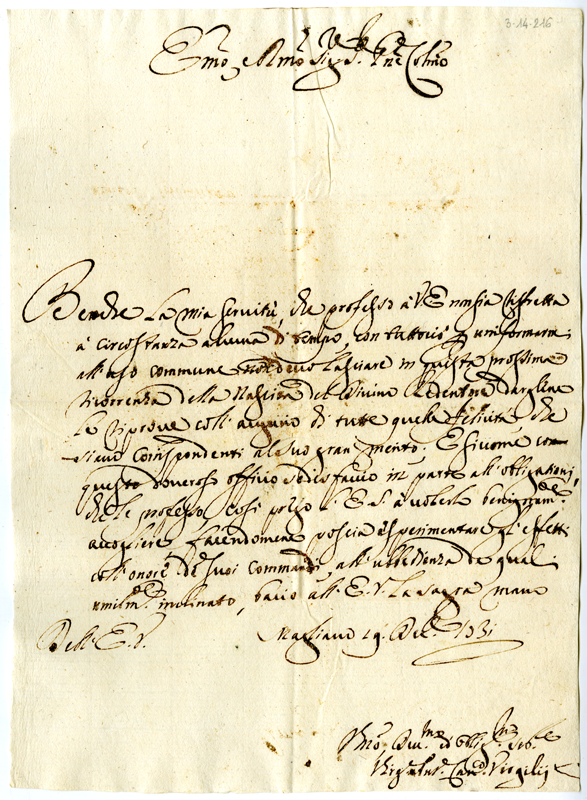 3-14-216
Emo, e Rmo Sig.r P.ne Colmo
Benche la mia servitù, che professo à V.E. non sia ristretta
à circostanza alcuna di tempo, con tuttociò p uniformarmi
all'uso commune non devo lasciare in questa prossima
ricorrenza della Nascita del Divino Redentore dargliene
le riprove coll'augurio di tutte quelle felicità, che
siano corrispondenti al suo gran merito; E siccome con
questo doveroso offitio sodisfaccio in parte all'obligationi,
che le professo, così prego l'E.S. à volerlo benignam.te
accogliere facendomene poscia esperimentare gl'effetti
coll'onore de suoi commandi, all'ubbidienza de quali
umilm.te inclinato, bacio all'E.V. la sagra mano
Dell'E.V. Magliano 19. Dec.e 1731
Umo, Dev.mo ed Obblig.mo Ser.e
Cand. Virgilij